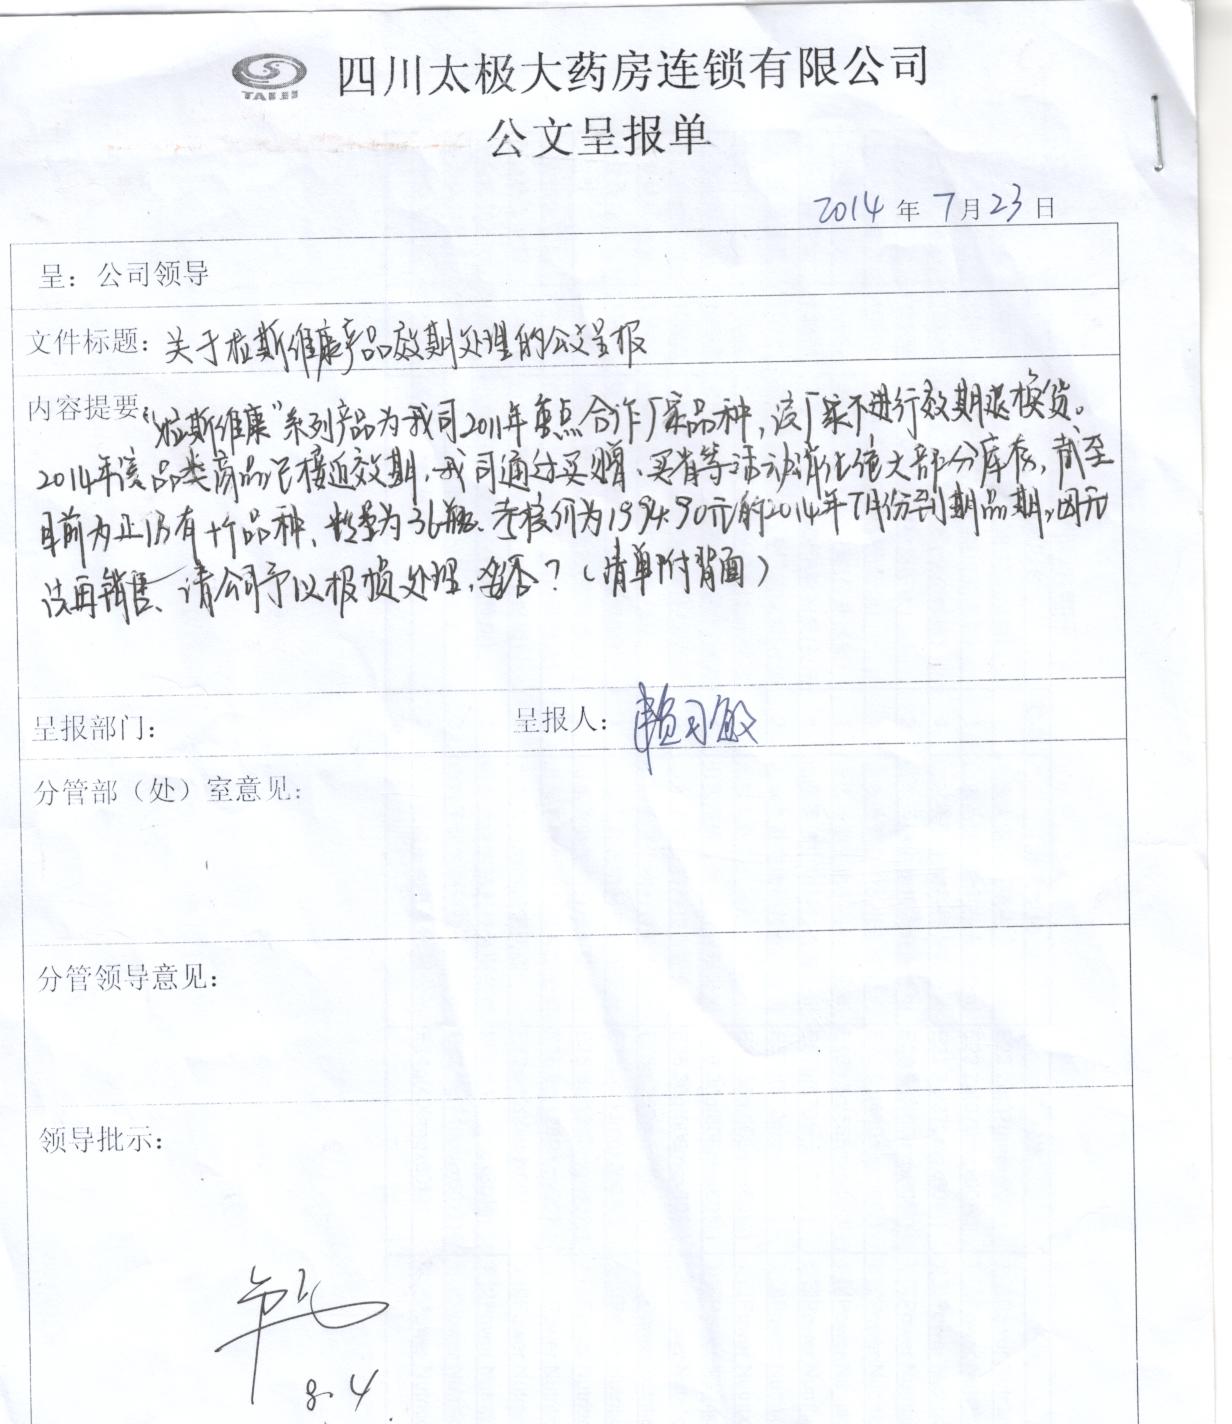 TAIJI
四川太极大药房连锁有限公司
公文呈报单
2014年7月23日
呈：公司领导
文件标题：关于拉斯维康产品效期处理的公文呈报
内容提要："拉斯维康"系列产品为我司2011年重点合作厂家品种，该厂家不进行效期退换货。
2014年该品类商品已接近效期，我司通过买赠、买省等活动消化绝大部分库存，截至
目前为止仍有十个品种、数量为36瓶、考核价为1994.90元的2014年7月份到期品期，因无
法再销售、请公司予以报损处理，妥否？（清单附背面）
呈报部门：
呈报人：赖习敏
分管部（处）室意见：
分管领导意见：
领导批示：
8.4